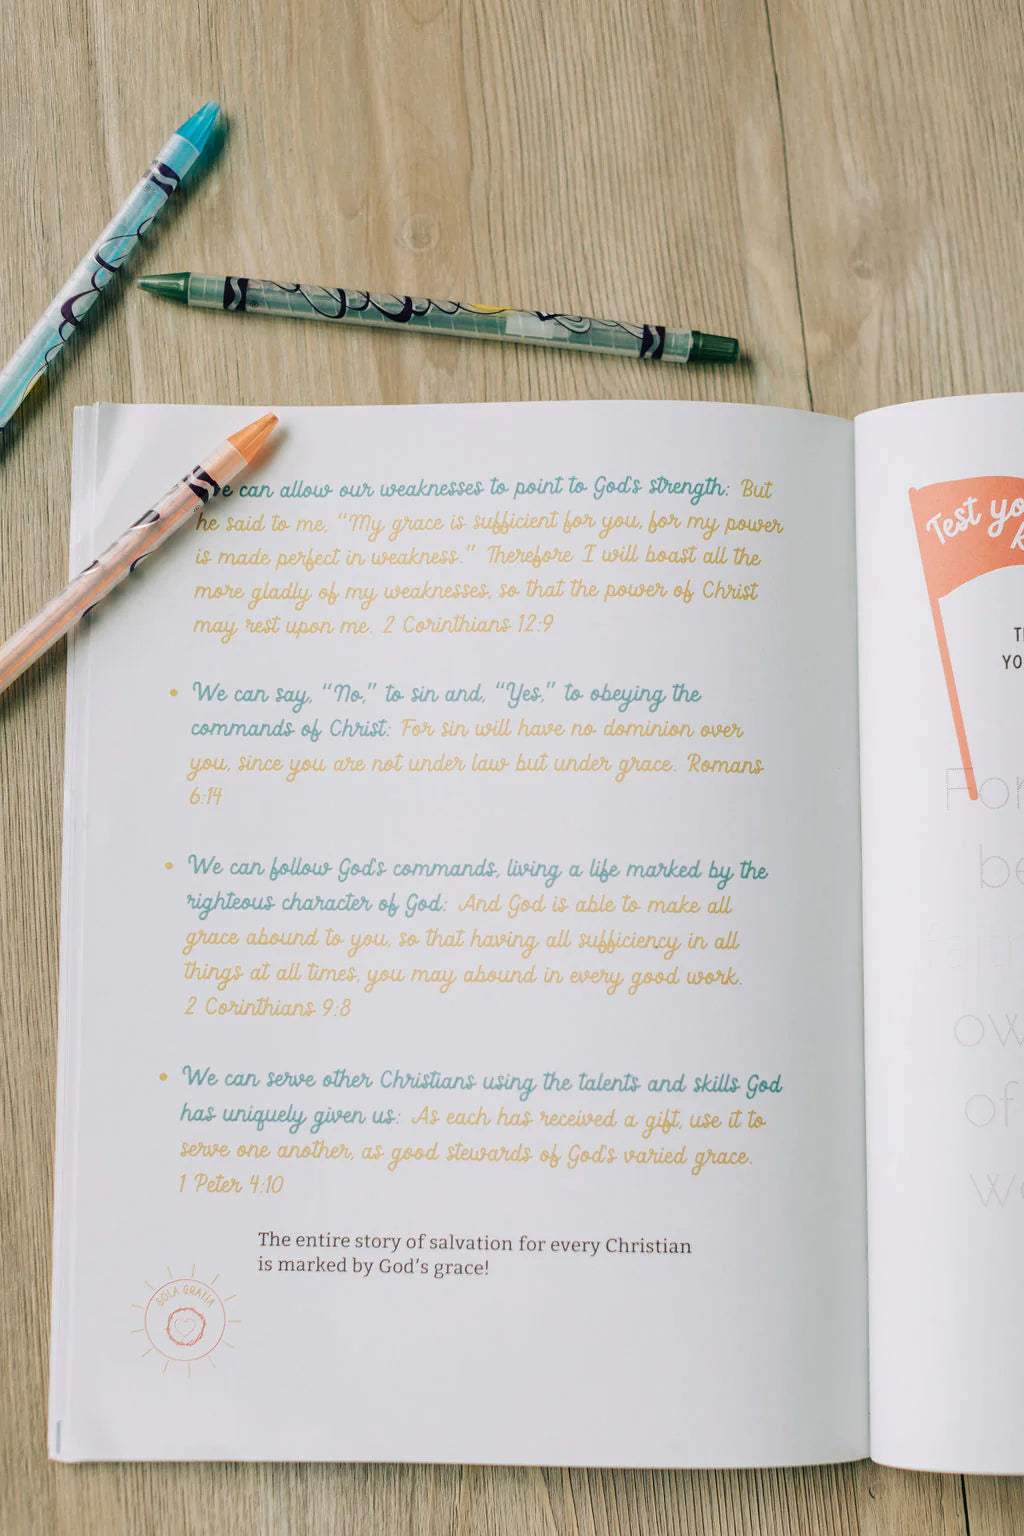 e can allow our weaknesses to point to God's strength: But
he said to me, "My grace is sufficient for you, for my power
is made perfect in weakness." Therefore I will boast all the
more gladly of my weaknesses, so that the power of Christ
may rest upon me. 2 Corinthians 12:9
• We can say, "No," to sin and, "Yes," to obeying the
commands of Christ: For sin will have no dominion over
you, since you are not under law but under grace. Romans
6:14
• We can follow God's commands, living a life marked by the
righteous character of God: And God is able to make all
grace abound to you, so that having all sufficiency in all
things at all times, you may abound in every good work.
2 Corinthians 9:8
• We can serve other Christians using the talents and skills God
has uniquely given us: As each has received a gift, use it to
serve one another, as good stewards of God's varied grace.
1 Peter 4:10
The entire story of salvation for every Christian
is marked by God's grace!
SOLA GRATIA
Test yo
k
T
YO
For
be
faith
ow
of
wo